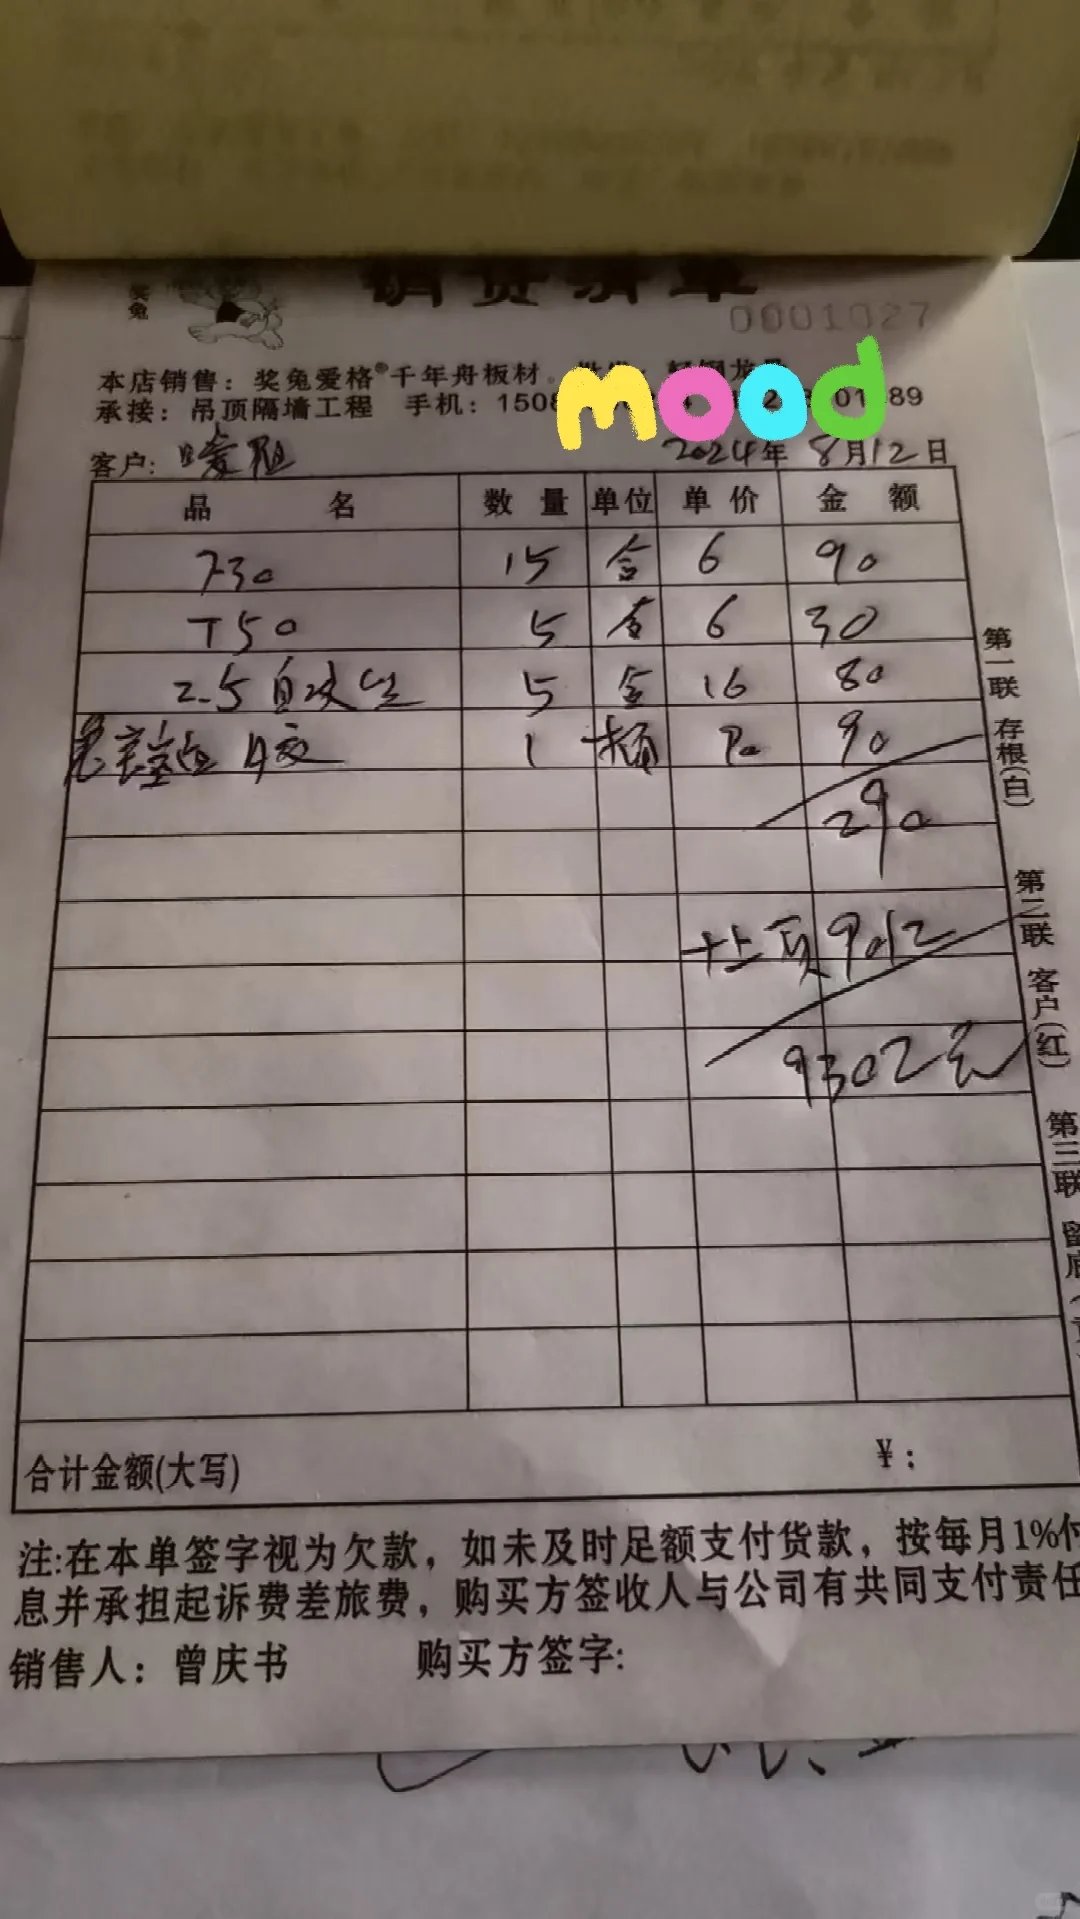 奖兔
销货清单
0001027
本店销售：奖兔爱格®千年舟板材。批发：轻钢龙骨
承接：吊顶隔墙工程 手机：1508
mood
89
客户: 暖阳 2024年8月12日
品名 数量 单位 单价 金额
F30 15 合 6 90
T50 5 合 6 30
2.5自攻 5 合 16 80
胶 1 桶 90 90
290
+上页 9012
9302元
合计金额(大写) ￥:
注:在本单签字视为欠款，如未及时足额支付货款，按每月1%付
息并承担起诉费差旅费，购买方签收人与公司有共同支付责任
销售人：曾庆书 购买方签字:
第一联 存根(白)
第二联 客户(红)
第三联 留底